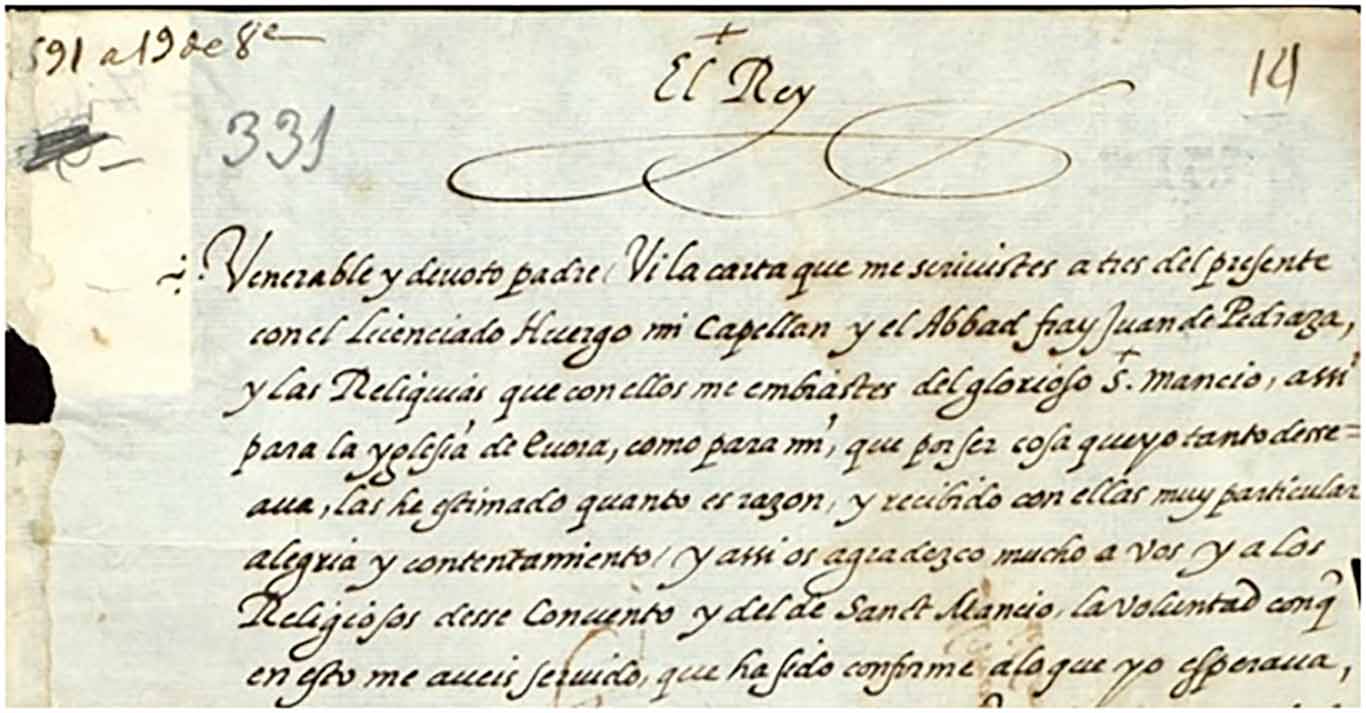 591 a 19 de 8e
+
El Rey
14
331
Venerable y deuoto padre/ Vi la carta que me scriuistes a tres del presente
con el Licenciado Huergo mi Capellan y el Abbad fray Juan de Pedraza,
y las Reliquias que con ellos me embiastes del glorioso S. Mancio, assi
para la yglesia de Euora, como para mi, que por ser cosa que yo tanto desse=
aua, las he estimado quanto es razon, y recibido con ellas muy particular
alegria y contentamiento/ y assi os agradezco mucho a vos y a los
Religiosos desse Conuento y del de Sanct Mancio, la voluntad conq̃
en esto me aueis seruido, que ha sido conforme a lo que yo esperaua,